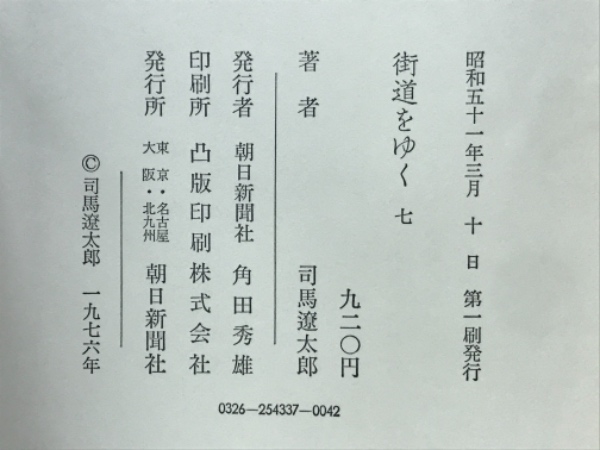 昭和五十一年三月 十 日 第一刷発行
街道をゆく 七
九二〇円
著 者 司馬遼太郎
発行者 朝日新聞社 角田秀雄
印刷所 凸版印刷株式会社
発行所 東京・名古屋 大阪・北九州 朝日新聞社
© 司馬遼太郎 一九七六年
0326—254337—0042